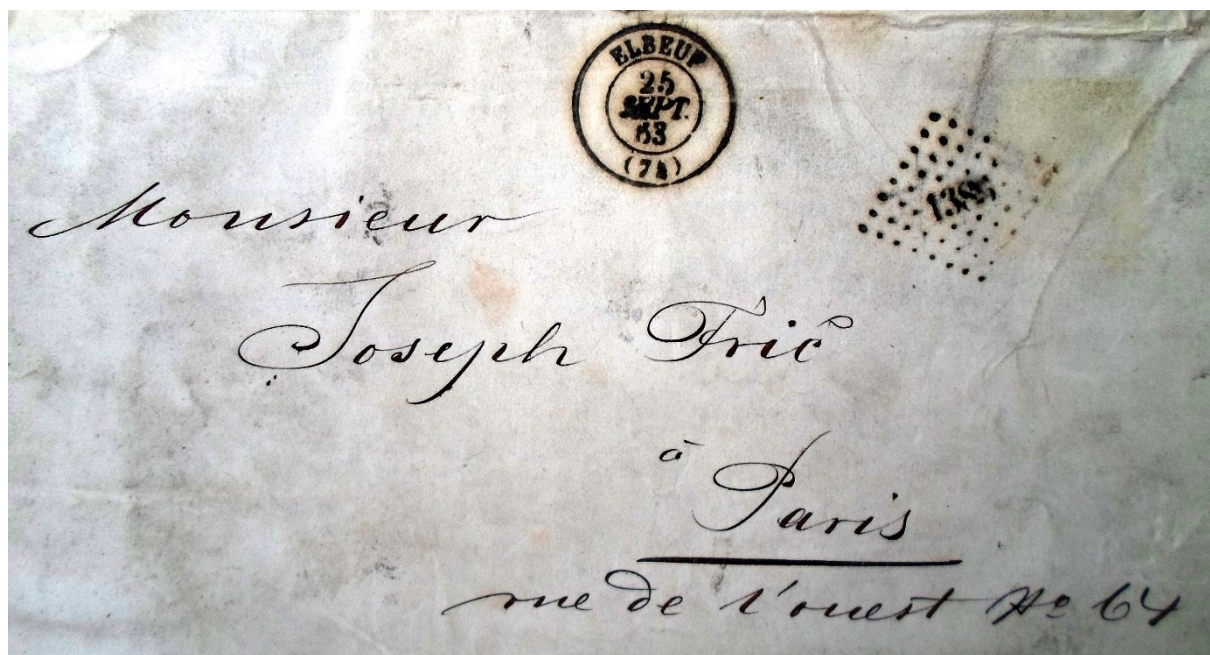 ELBEUF
25
SEPT.
63
(74)
Monsieur
Joseph Frič
à
Paris
rue de l'ouest No 64